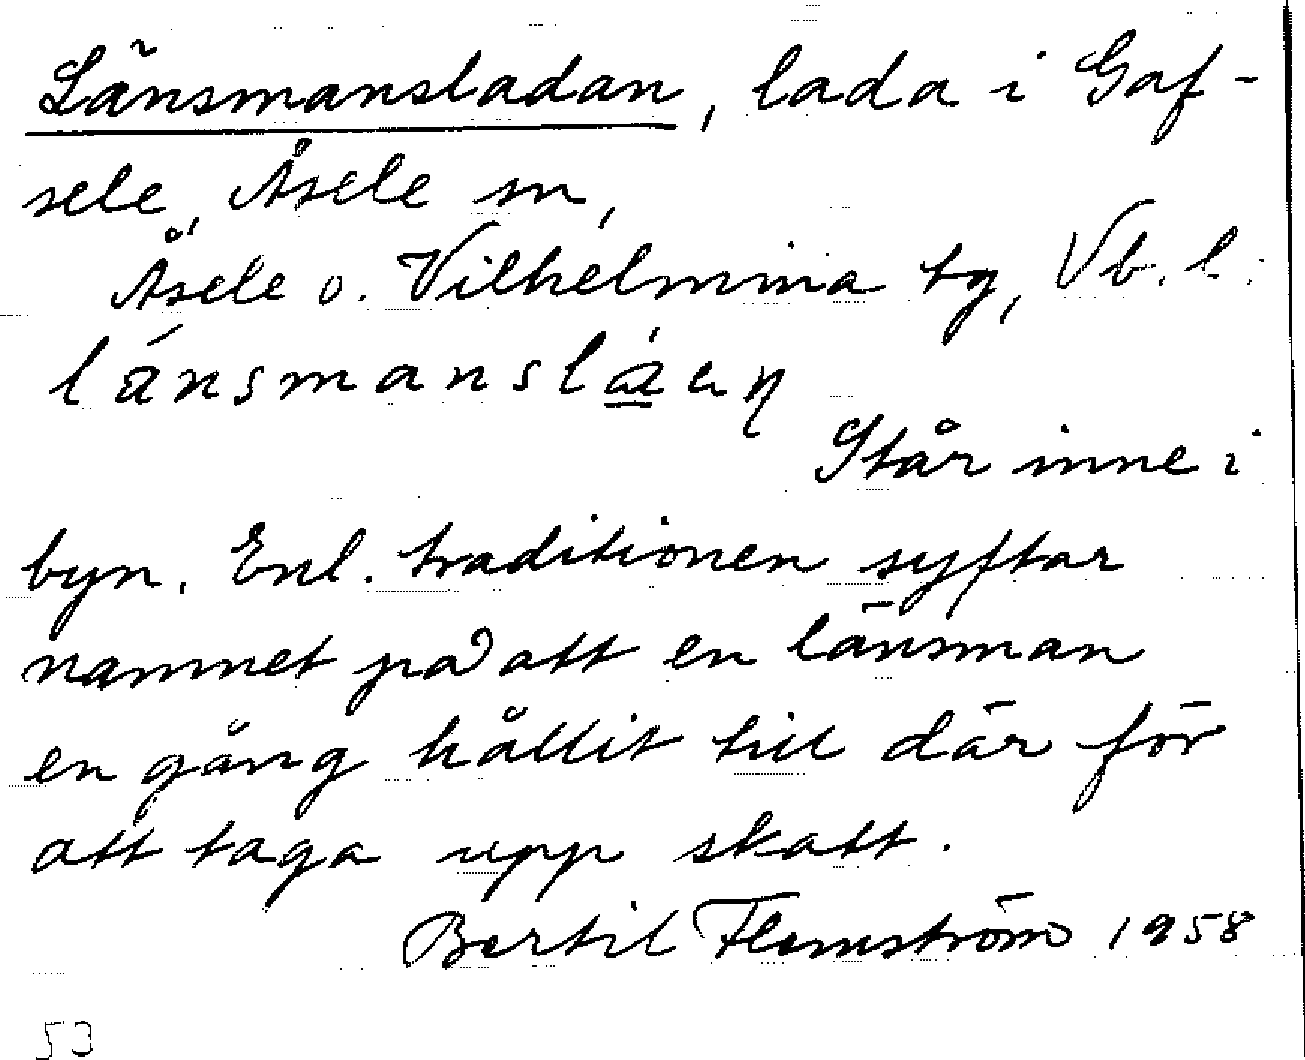 Länsmansladan, lada i Gaf-
sele, Åsele sn,
Åsele o. Vilhelmina tg, Vb. l.
länsmanslááen
Står inne i
byn. Enl. traditionen syftar
namnet på att en länsman
en gång hållit till där för
att taga upp skatt.
Bertil Flemström 1958
53